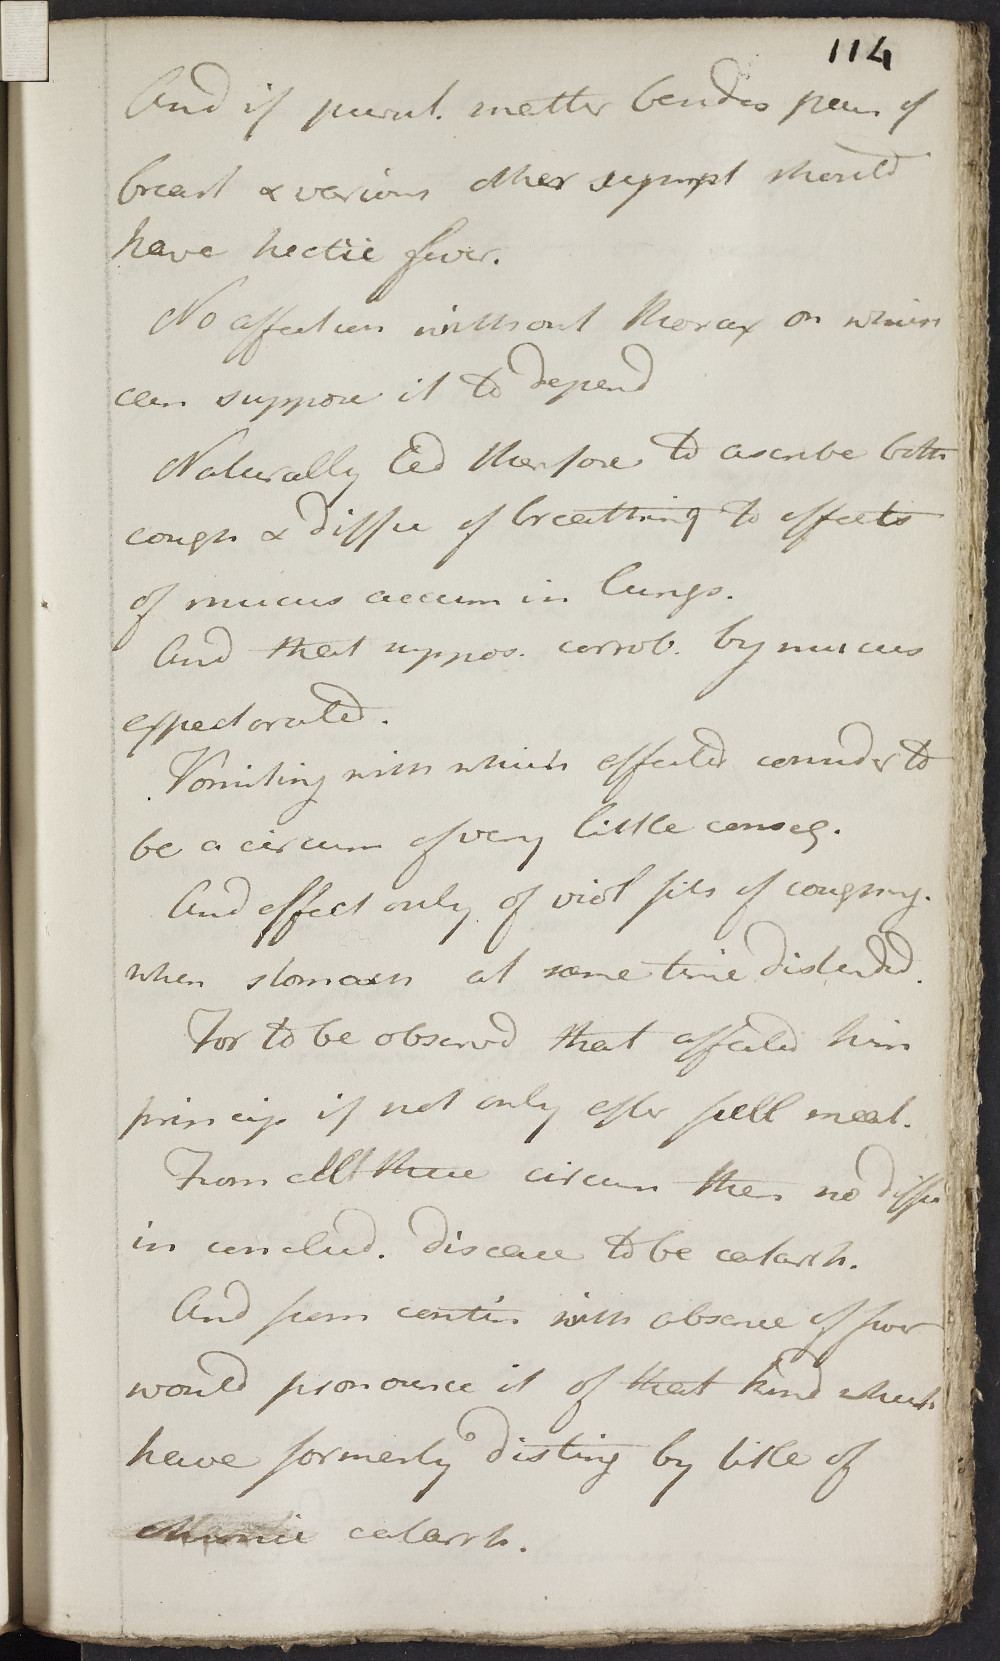 114
And if purul. matter besides pain of
breast & various other sympt should
have hectic fever.
No affection without thorax on which
can suppose it to depend
Naturally led therefore to ascribe both
cough & diffic of breathing to effects
of mucus accum in lungs.
And that suppos. corrob. by mucus
expectorated.
Vomiting with which affected consider to
be a circum of very little conseq.
And effect only of viol fits of coughing.
when stomach at same time distended.
For to be observd that affected him
princip if not only after full meal.
From all these circum then no diffic
in conclud. disease to be catarrh.
And from contin with absence of fever
would pronounce it of that kind which
have formerly disting by title of
chronic catarrh.